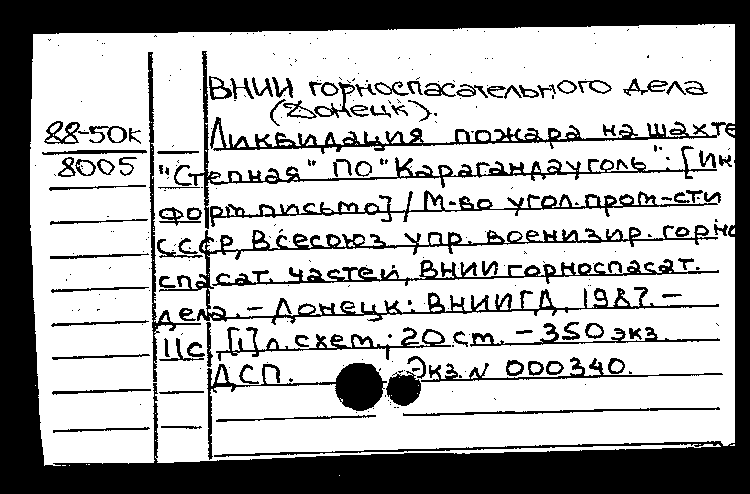 ВНИИ горноспасательного дела
(Донецк).
88-50к
8005
Ликвидация пожара на шахте
"Степная" ПО "Карагандауголь": [Ин-
форм.письмо] / М-во угол.пром-сти
СССР, Всесоюз упр. военизир. горно
спасат. частей, ВНИИ горноспасат.
дела. - Донецк: ВНИИГД, 1987. -
11с, [1] л.схем.; 20 см. - 350 экз.
ДСП. Экз.N 000340.